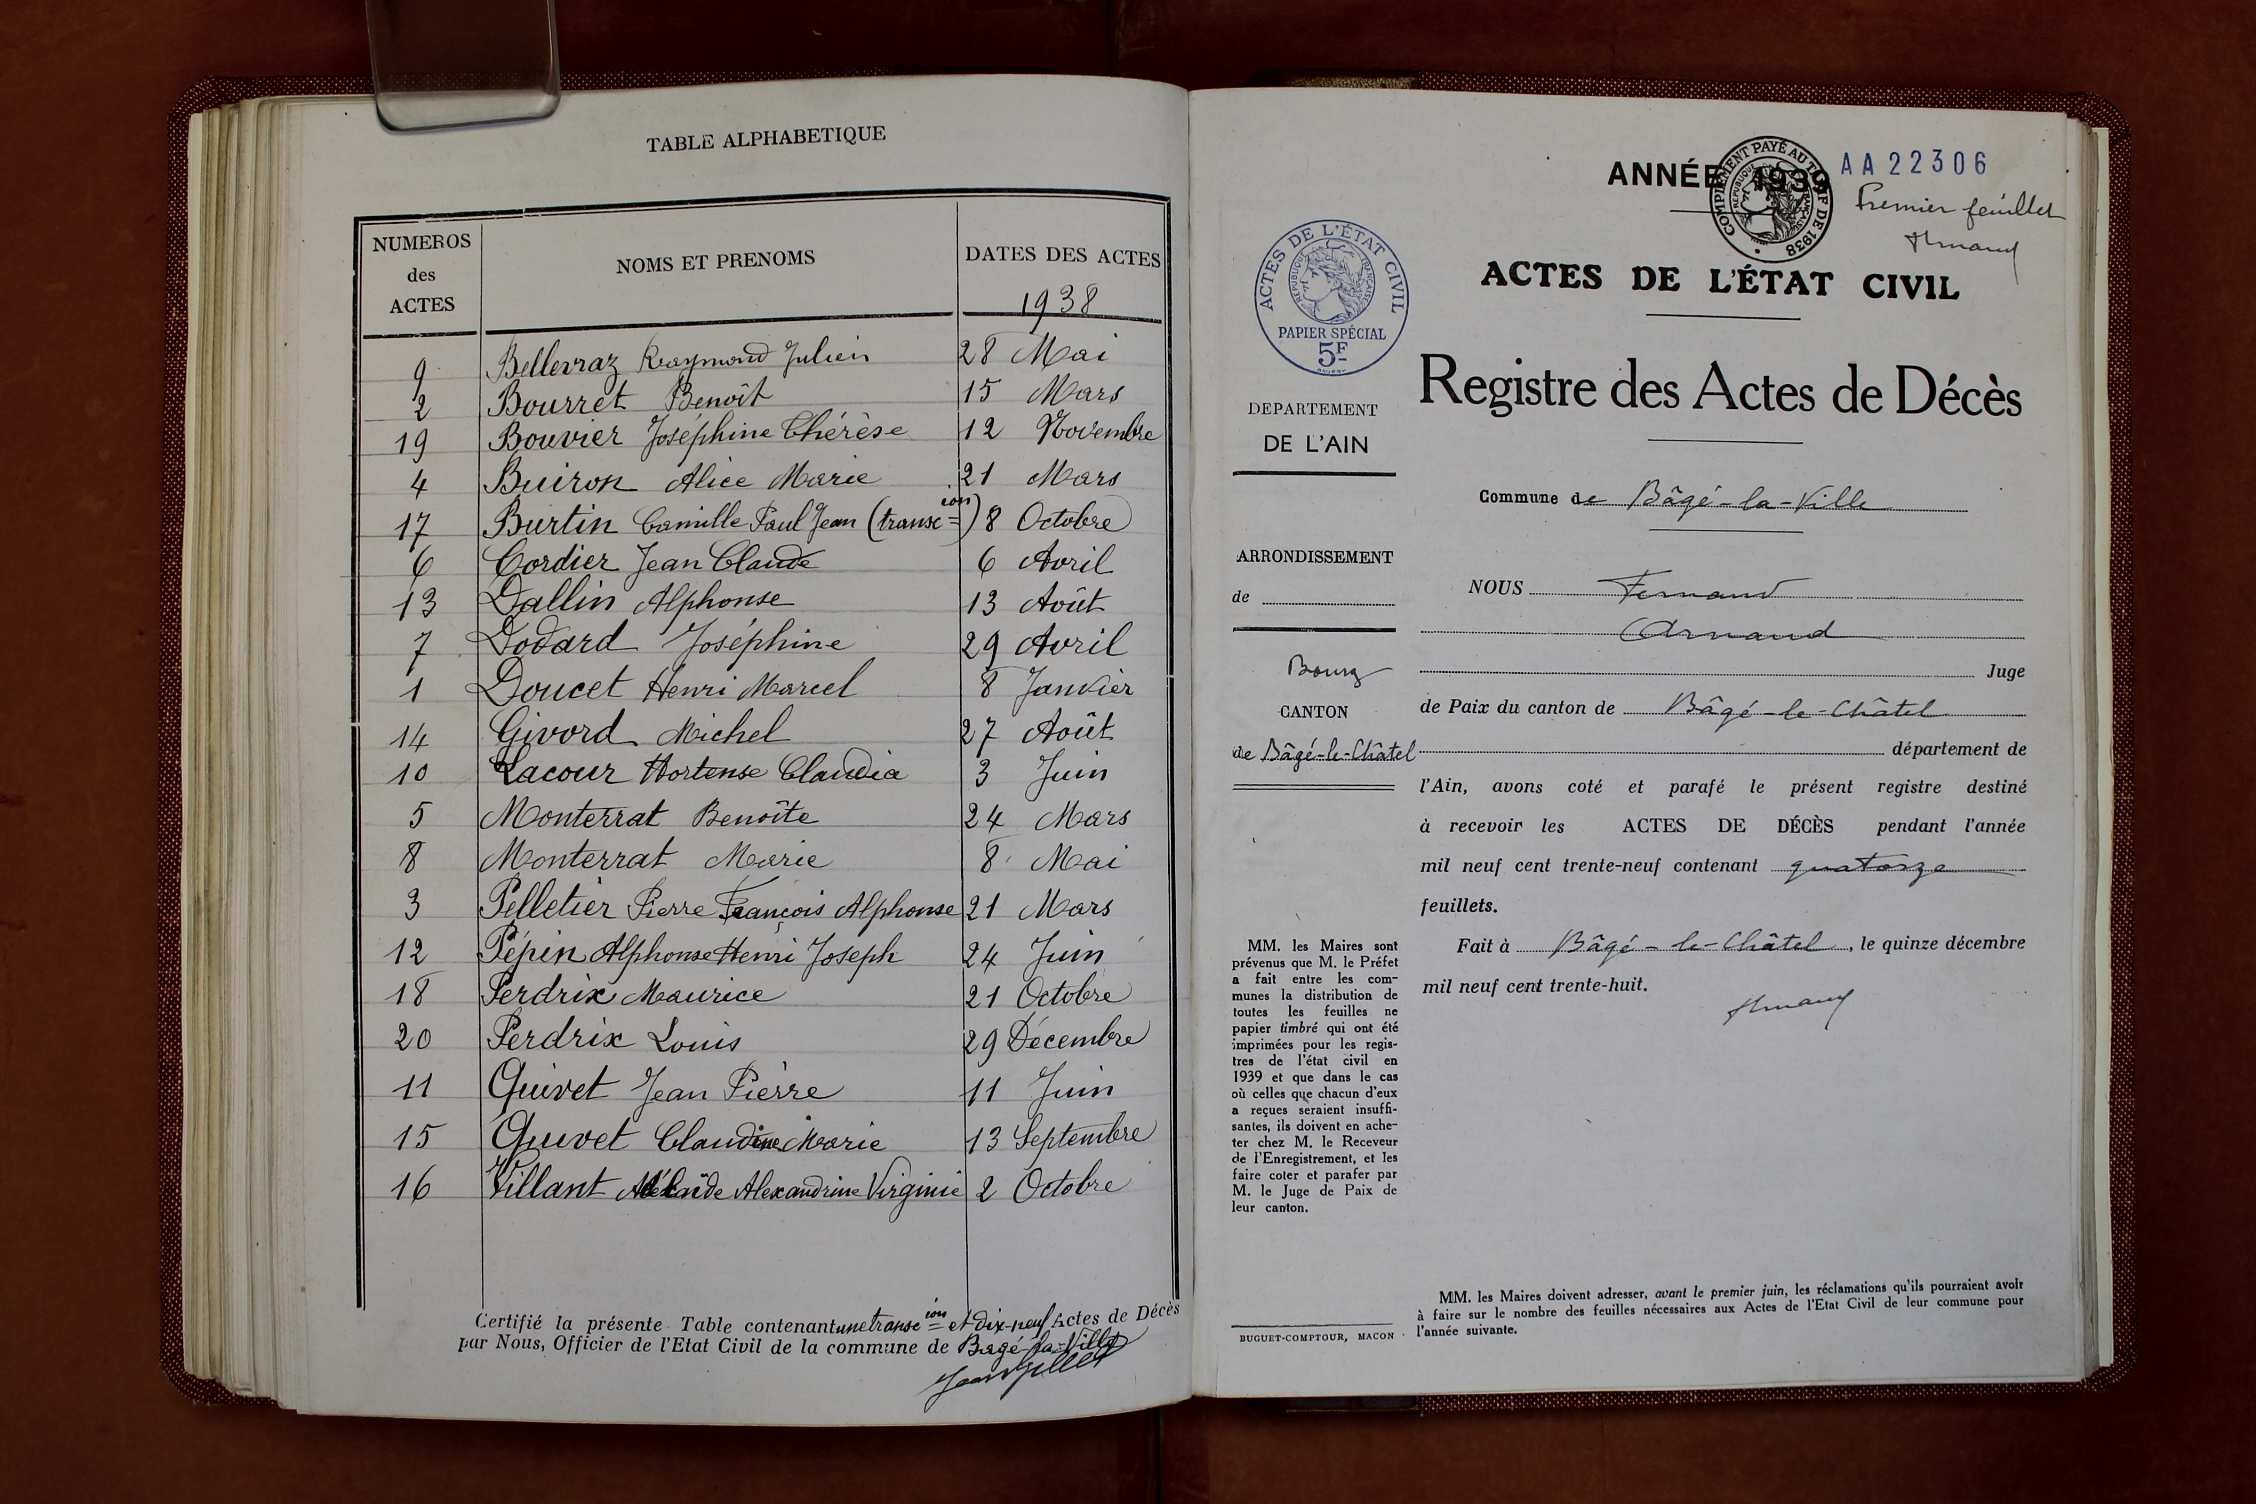 TABLE ALPHABETIQUE
NUMEROS des ACTES | NOMS ET PRENOMS | DATES DES ACTES 1938
9 Bellevraz Raymond Julien 28 Mai
2 Bourret Benoît 15 Mars
19 Bouvier Joséphine Thérèse 12 Novembre
4 Buiron Alice Marie 21 Mars
17 Burtin Camille Paul Jean (transc ion) 8 Octobre
6 Cordier Jean Claude 6 Avril
13 Dallin Alphonse 13 Août
7 Dodard Joséphine 29 Avril
1 Doucet Henri Marcel 8 Janvier
14 Givord Michel 27 Août
10 Lacour Hortense Claudia 3 Juin
5 Monterrat Benoîte 24 Mars
8 Monterrat Marie 8 Mai
3 Pelletier Pierre François Alphonse 21 Mars
12 Pépin Alphonse Henri Joseph 24 Juin
18 Perdrix Maurice 21 Octobre
20 Perdrix Louis 29 Décembre
11 Quivet Jean Pierre 11 Juin
15 Quivet Claudine Marie 13 Septembre
16 Villant Adélaïde Alexandrine Virginie 2 Octobre
Certifié la présente Table contenant une transc ion et dix-neuf Actes de Décès
par Nous, Officier de l'Etat Civil de la commune de Bâgé-la-Ville
ANNÉE 1939
COMPLEMENT PAYÉ AU TARIF DE 1938
REPUBLIQUE FRANÇAISE
AA22306
Premier feuillet
Arnaud
ACTES DE L'ÉTAT CIVIL
REPUBLIQUE FRANÇAISE
PAPIER SPÉCIAL
5F
ACTES DE L'ÉTAT CIVIL
Registre des Actes de Décès
DEPARTEMENT
DE L'AIN
ARRONDISSEMENT
de
Bourg
CANTON
de Bâgé-le-Châtel
Commune de Bâgé-la-Ville
NOUS Fernand
Arnaud
Juge
de Paix du canton de Bâgé-le-Châtel
département de
l'Ain, avons coté et parafé le présent registre destiné
à recevoir les ACTES DE DÉCÈS pendant l'année
mil neuf cent trente-neuf contenant quatorze
feuillets.
Fait à Bâgé-le-Châtel, le quinze décembre
mil neuf cent trente-huit.
Arnaud
MM. les Maires sont
prévenus que M. le Préfet
a fait entre les com-
munes la distribution de
toutes les feuilles ne
papier timbré qui ont été
imprimées pour les regis-
tres de l'état civil en
1939 et que dans le cas
où celles que chacun d'eux
a reçues seraient insuffi-
santes, ils doivent en ache-
ter chez M. le Receveur
de l'Enregistrement, et les
faire coter et parafer par
M. le Juge de Paix de
leur canton.
BUGUET-COMPTOUR, MACON
MM. les Maires doivent adresser, avant le premier juin, les réclamations qu'ils pourraient avoir
à faire sur le nombre des feuilles nécessaires aux Actes de l'Etat Civil de leur commune pour
l'année suivante.